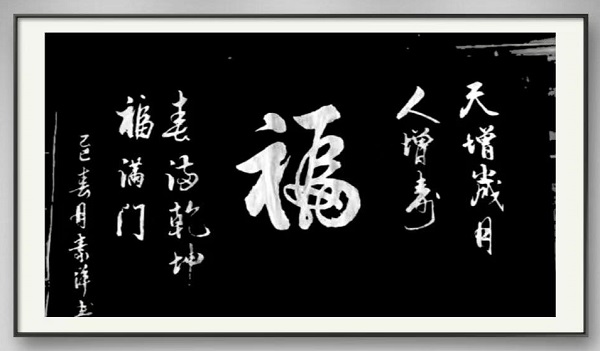 天增岁月
人增寿
福
春满乾坤
福满门
乙巳春月素洋书